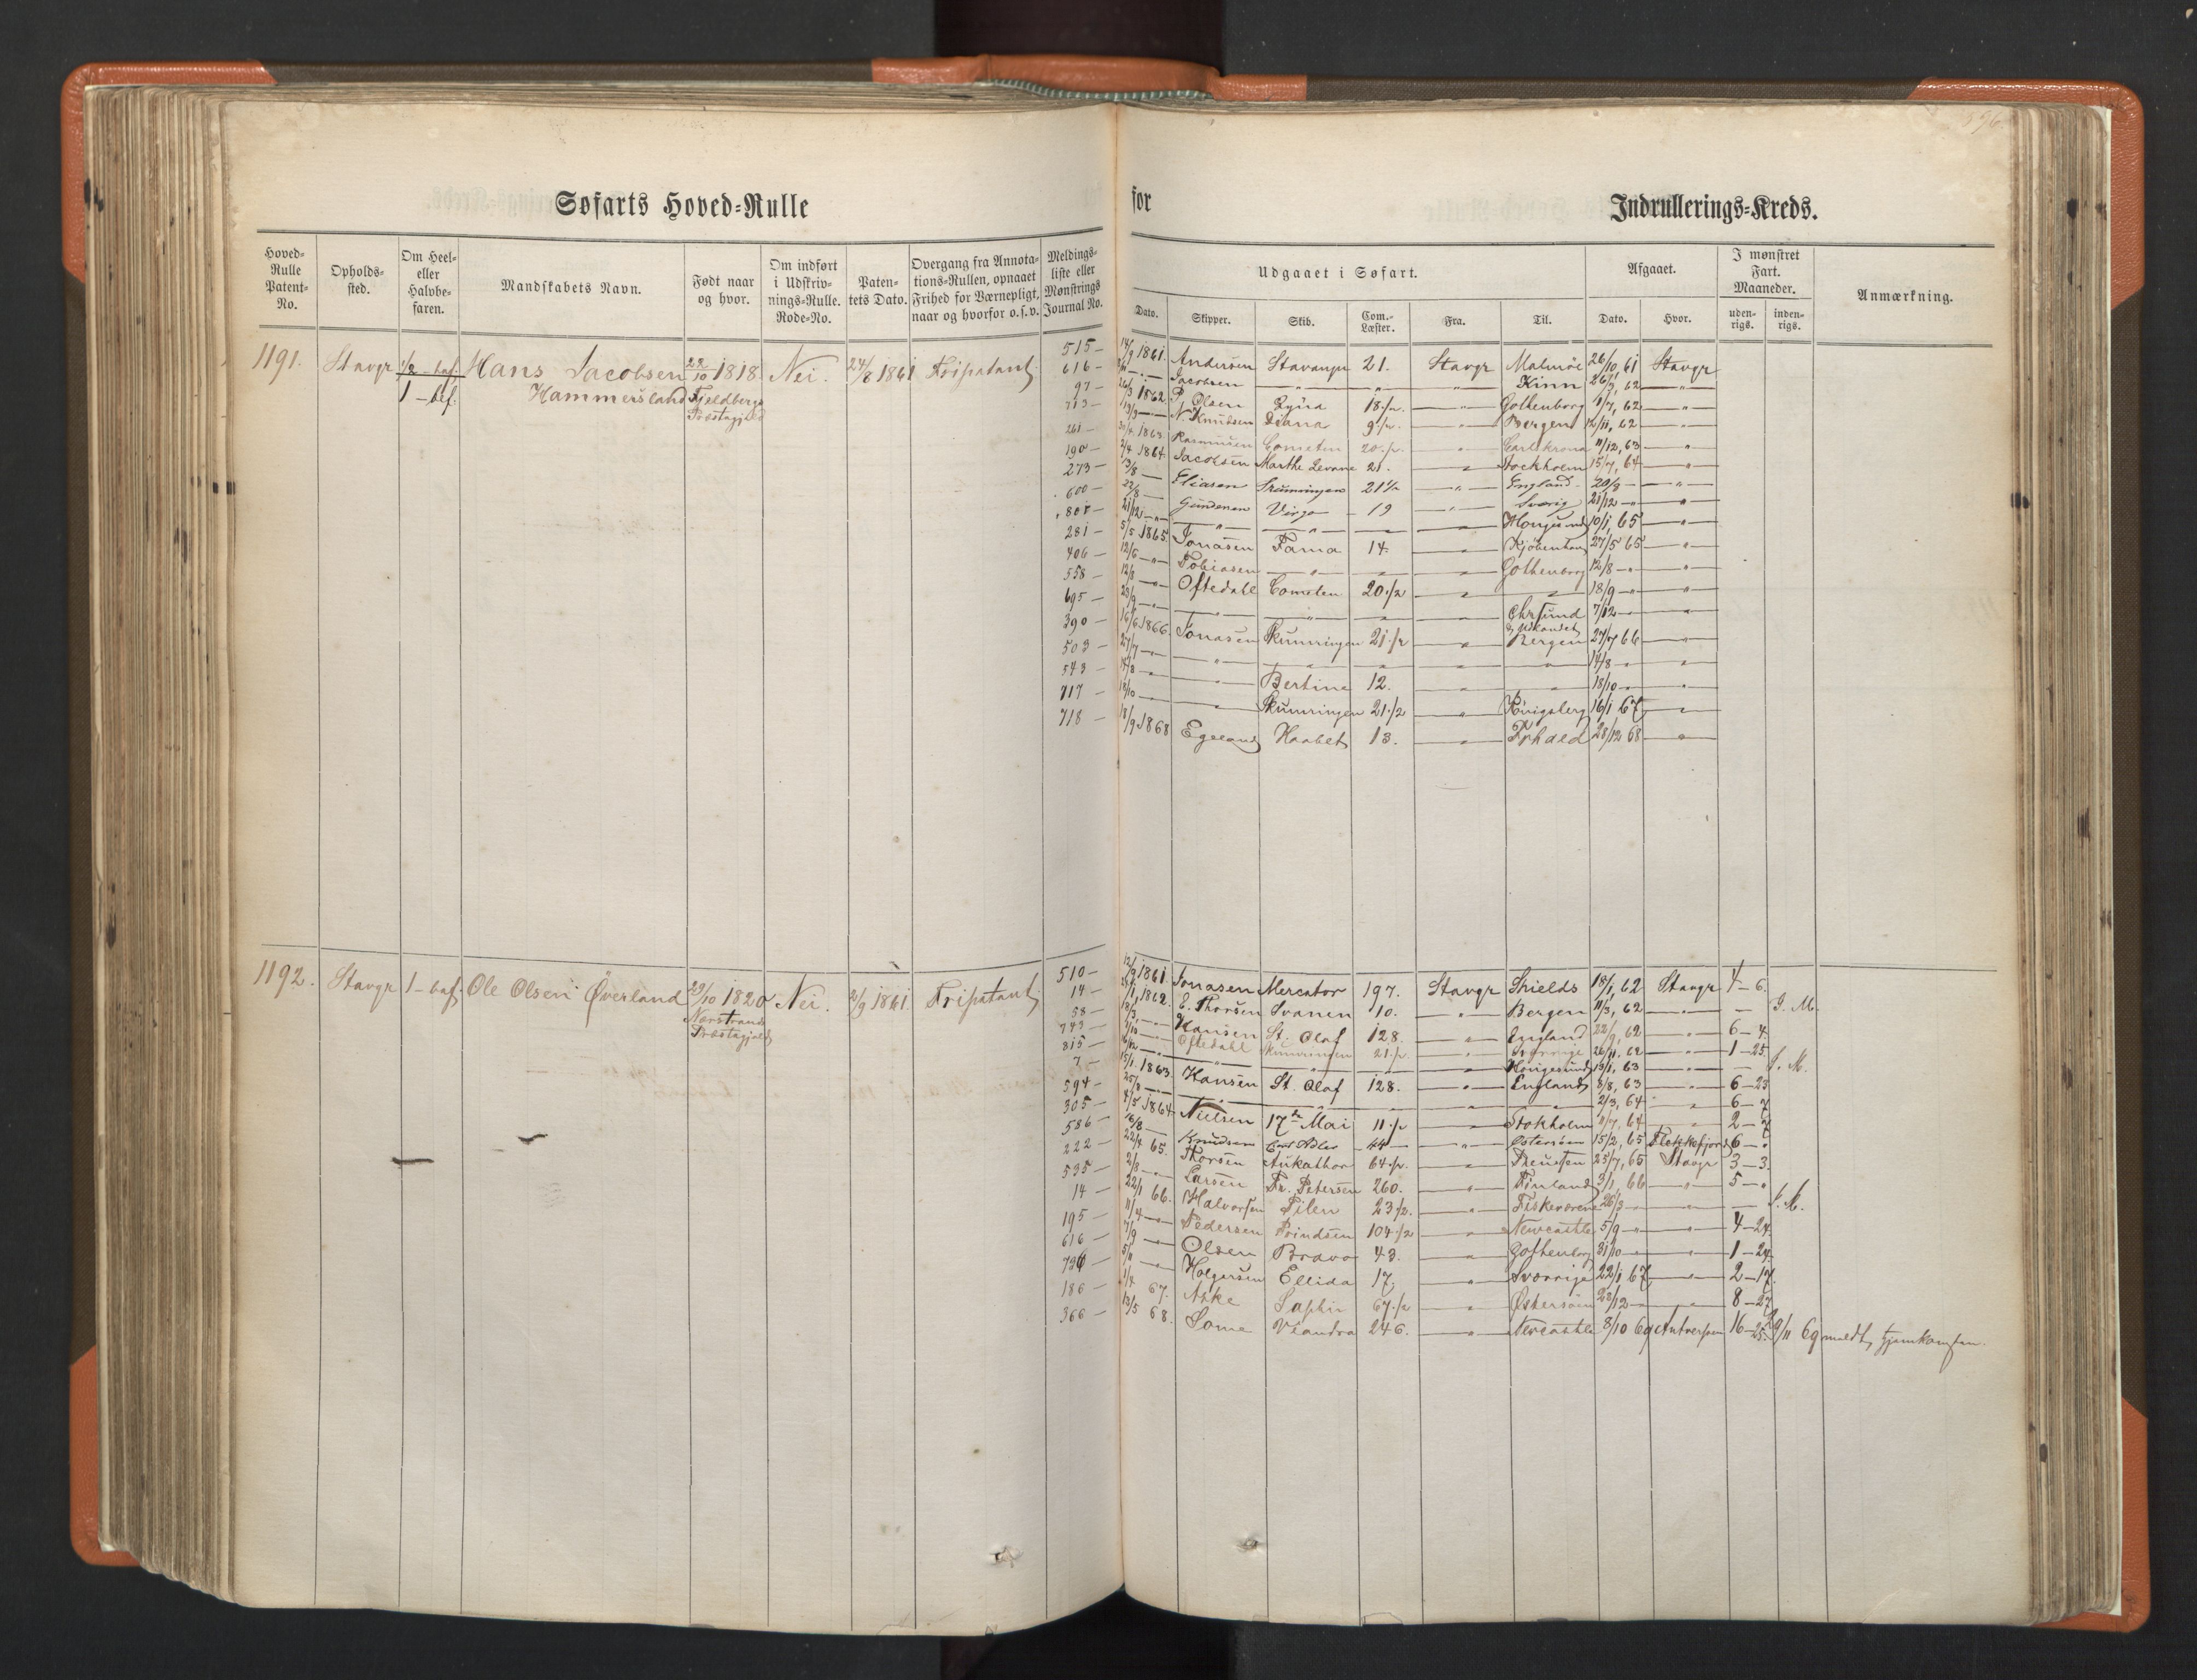 596
Søfarts Hoved=Rulle for Indrullerings=Kreds.
Hoved=Rulle Patent=No. Opholds=sted. Om Heel= eller Halvbe=faren. Mandskabets Navn. Født naar og hvor. Om indført i Udskriv=nings=Rulle. Rode=No. Paten=tets Dato. Overgang fra Annota=tions=Rullen, opnaaet Frihed for Værnepligt, naar og hvorfor o.s.v. Meldings=liste eller Mønstrings Journal No.
Udgaaet i Søfart. Afgaaet. I mønstret Fart. Maaneder. Anmærkning.
Dato. Skipper. Skib. Com.=Læster. Fra. Til. Dato. Hvor. uden=rigs. inden=rigs.
1191. Stavgr 1/2 - bef. Hans Jacobsen 22/10 1818. Nei. 24/8 1861 Fripatent
1 - bef. Hammersland Fjeldbergs
Præstegjeld
515 - 14/9 1861. Andersen Stavanger 21. Stavgr Malmöe 26/10, 61 Stavgr
616 - Jacobsen — " — " — " Kinn 26/3, 62 — "
97 - 26/3 1862. P. Olsen 18 1/2. — " Gothenborg 1/7, 62 — "
713 - N. Knudsen Diana 9 1/2. — " Bergen 12/11, 62 — "
261 - 30/4 1863. Rasmusen Cometen 20 1/2. — " Carlskrona 11/12, 63 — "
190 - 2/4 1864. Jacobsen Marthe 21. — " Stockholm 15/7, 64 — "
273 - Eliasen Skumringen 21 1/2 — " England 20/8 — "
600 - 22/8 — Gundersen Virgo 19 — " Sverig 21/12 — "
801 - 21/12 — " — " — " Hougesund 10/1, 65 — "
281 - 5/5 1865. Jonasen Fama 14. — " Kjöbenhavn 27/5 65 — "
406 - 12/6 — " Tobiasen — " — " — " Gothenborg 12/8 — " — "
558 - 12/8 — " Oftedahl Cometen 20 1/2 — " — " 18/9 — " — "
695 - 23/9 — " — " — " — " Chrsund 7/12 — " — "
390 - 16/6 1866. Jonasen Skumringen 21 1/2 — " Bergen 27/7 66 — "
503 - 27/7 — " — " — " — " — " — " 14/8 — " — "
543 - — " — " Bertine 12. — " — " 18/10 — " — "
717 - 18/10 — — " Skumringen 21 1/2 — " Königsberg 16/1 67 — "
718 - 18/9 1868 Egeland Haabet 13. — " Frhald 28/12 68 — "
1192. Stavgr 1 - bef. Ole Olsen Øverland 29/10 1820 Nei. 2/9 1861 Fripatent
Nærstrand
Præstegjeld
510 - 12/9 1861. Jonasen Mercator 197. Stavgr Shields 18/1, 62 Stavgr 4 - 6.
14 - 1862. E. Thorsen Svanen 10. — " Bergen 11/3, 62 — " — I. M.
58 - 18/3, — Hansen St. Olaf 128. — " England 22/9, 62 — " 6 - 4.
743 - Oftedahl Skumringen 21 1/2 — " Sverrige 26/11, 62 — " 1 - 25.
815 - — " — " — " — " Hougesund 13/1, 63 — " — I. M.
7 - 15/1 1863. Hansen St. Olaf 128. — " England 8/8, 63 — " 6 - 23
594 - 25/8 — — " — " — " — " — " 2/3, 64 — " 6 - 7
305 - 4/5 1864 Nielsen 17de Mai 11 1/2 — " Stokholm 11/7, 64 — " 2 - 7
586 - 16/8 — Knudsen Carl Adler 44 — " Østersøen 15/2, 65 Flekkefjord 6 - "
222 - 22/4 65. Thorsen 64 1/2. — " Preusten 25/7, 65 Stavgr 3 - 3.
535 - 2/8 — " Larsen Fr. Petersen 260. — " Finland 3/1, 66 — " 5 - "
14 - 22/1 66. Halvorsen Pilen 23 1/2. — " Fiskeværene 26/3 — — " — I. M.
195 - 11/4 — " Pedersen Prindsen 104 1/2 — " Newcastle 5/9 — " — " 4 - 24.
616 - 7/9 — " Olsen Bravo 43. — " Gothenborg 31/10 — " — " 1 - 24.
726 - 5/11 — " Holgersen Ellida 17. — " Sverrige 22/1 67 — " 2 - 17.
186 - 1/4 67. Aske Saphir 67 1/2 — " Østersøen 28/12 — " — " 8 - 27
366 - 13/5 68. Some Viandra 246. — " Newcastle 8/10 69 Antverpen 16 - 25. 9/11 69 meldt hjemkomsten.